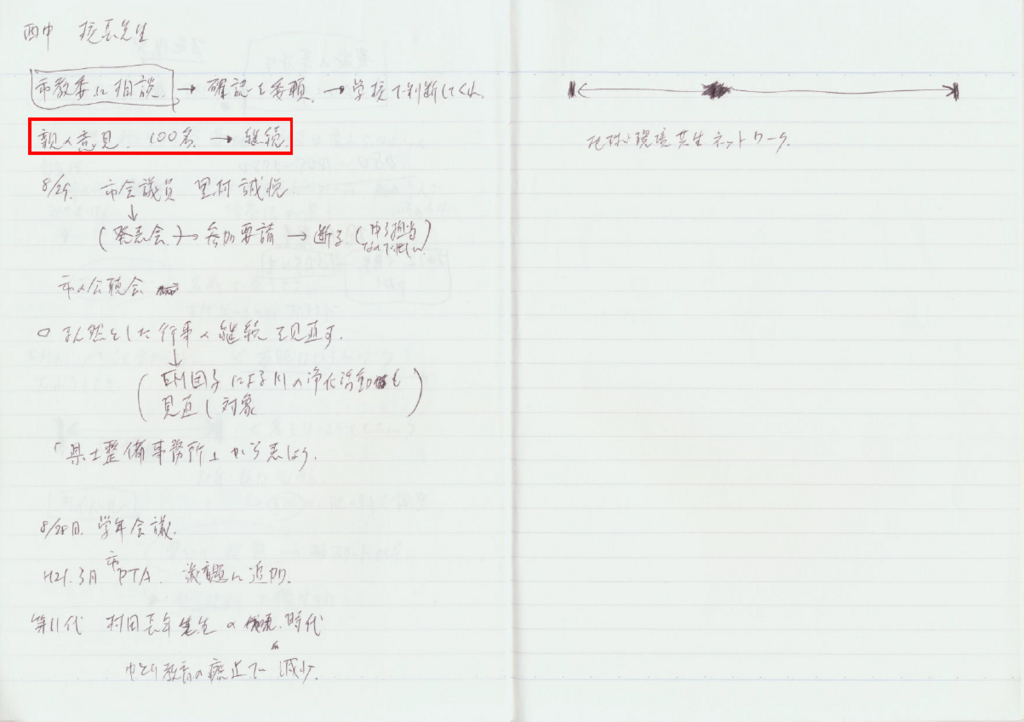 西中 校長先生
市教委に相談 → 確認を委頼. → 学校で判断してくれ
親の意見. 100名. → 継続.
8/29. 市会議員 里村誠悦
(発表会) → 参加要請 → 断る (ゆう担当なので無い)
市の公聴会
○ まん然とした行事の継続を見直す.
(EM団子による川の浄化活動も
見直し対象)
「県土整備事務所」から表しょう.
8/28日. 学年会議.
H21.3月 市PTA. 議題に追加.
第11代 村田 先生の 時代
ゆとり教育の廃止で 減少.
地球環境共生ネットワーク.